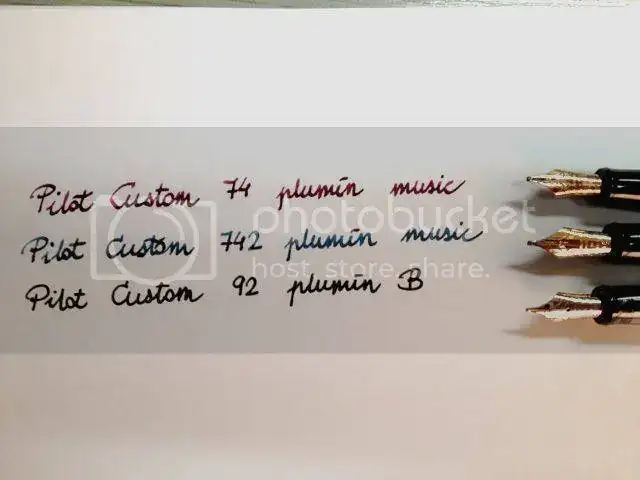 Pilot Custom 74 plumín music
Pilot Custom 742 plumín music
Pilot Custom 92 plumín B
photobucket
host. store. share.